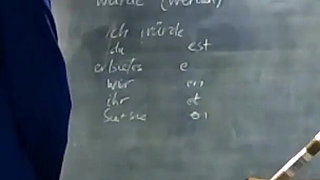 würde (werden)
ich würde
du est
er/sie/es e
wir en
ihr et
Sie+sie en